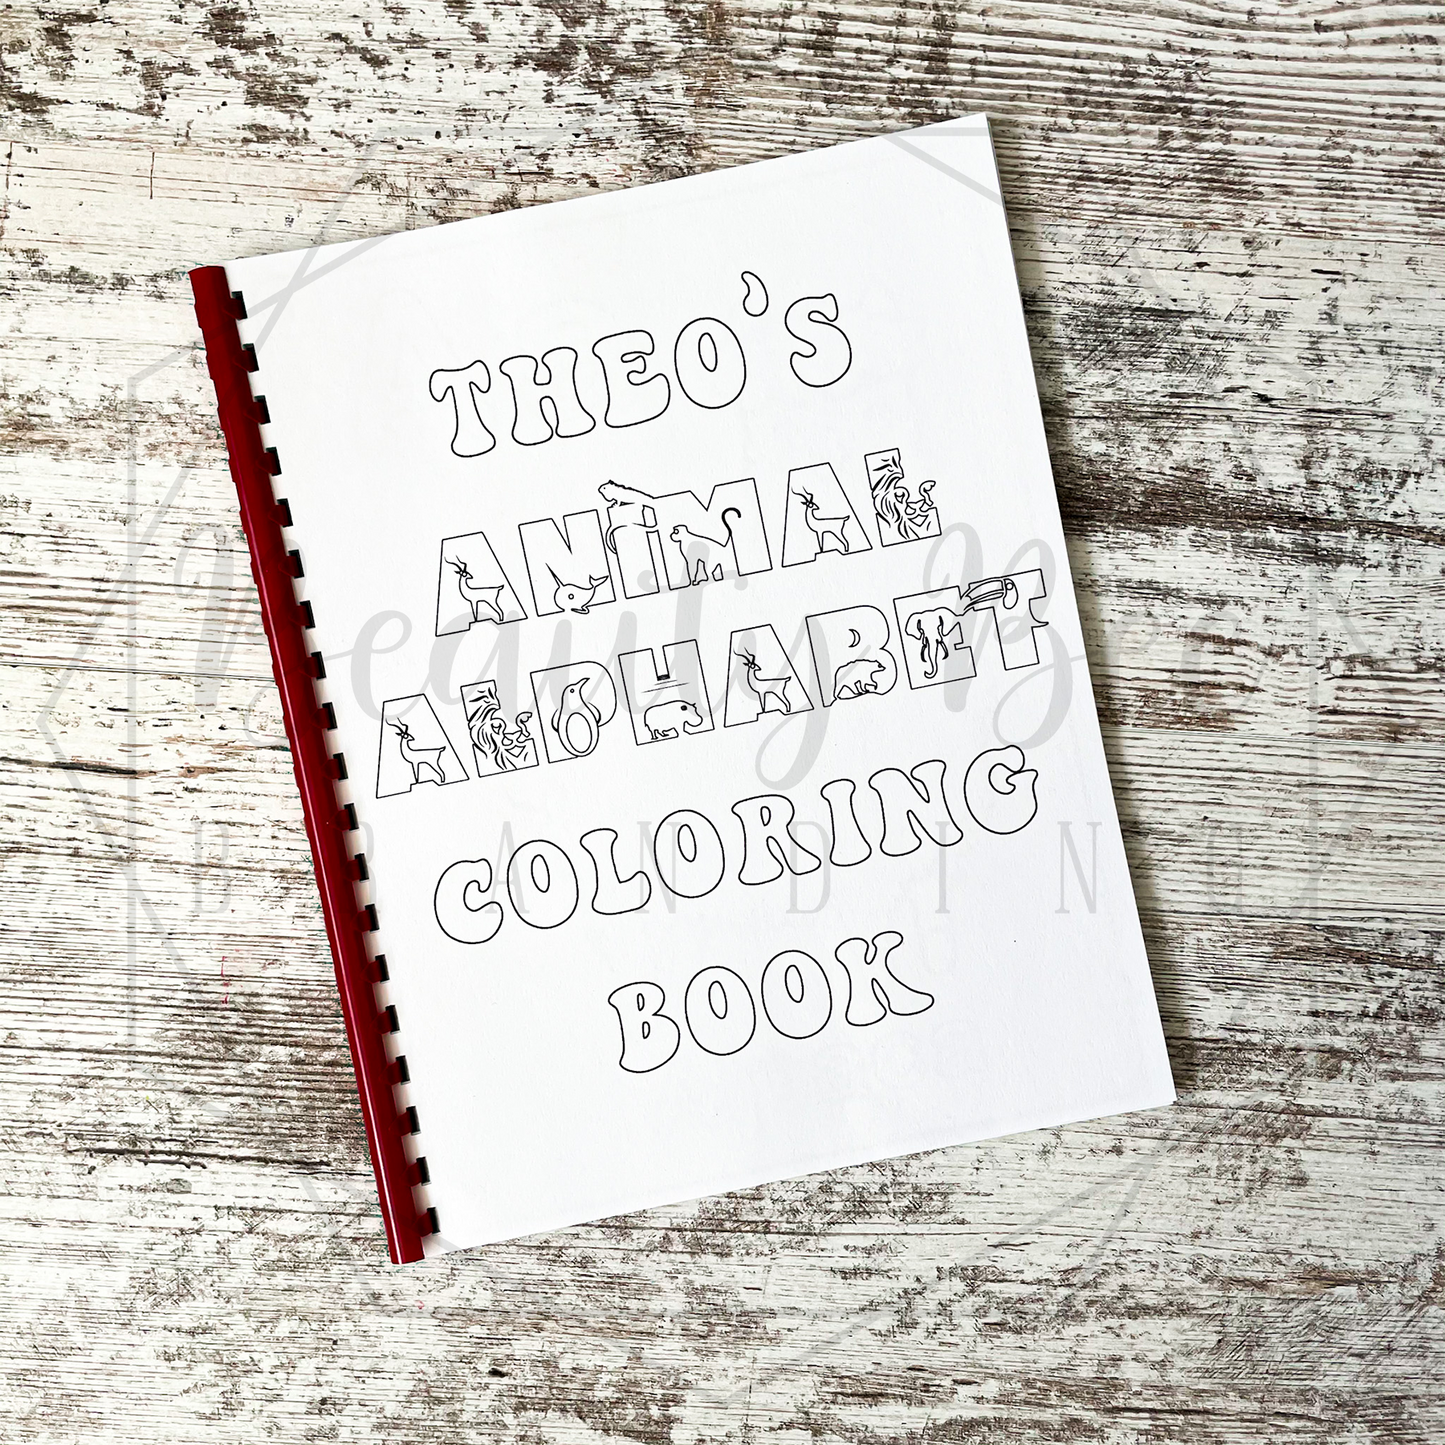 THEO'S
ANiMAL
ALPHABET
COLORING
BOOK
Beauty Bee
BRANDING